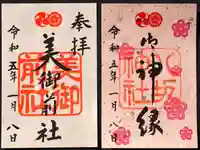 奉拝
美御前社
令和五年一月八日
美御前社
御神縁
令和五年一月八日